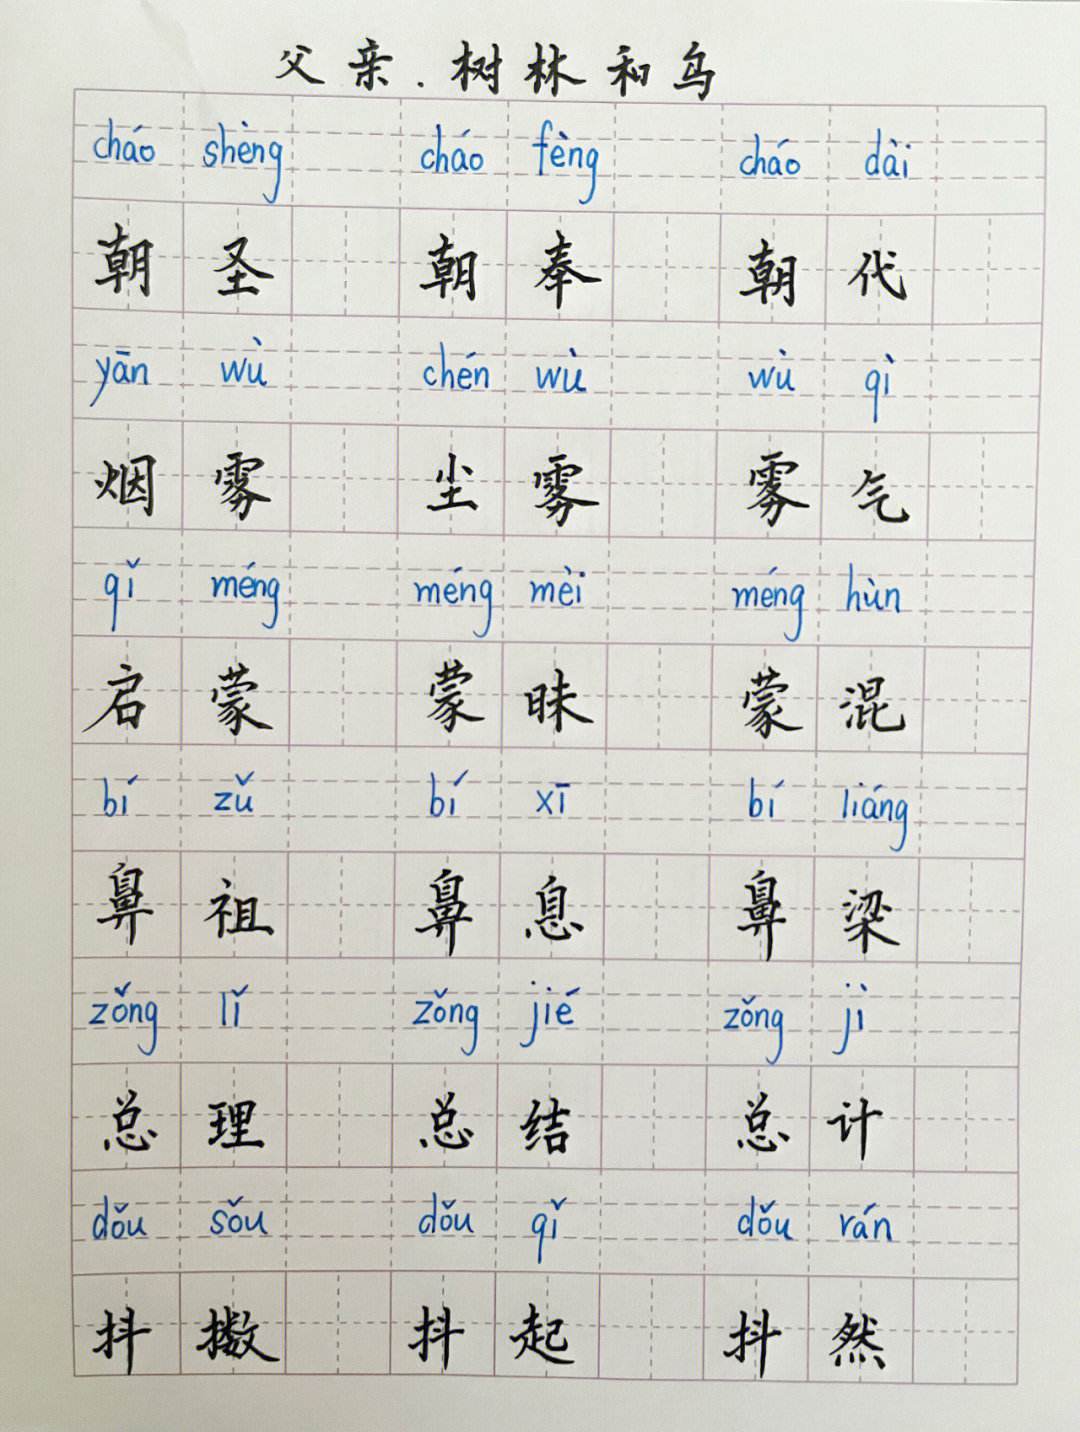 父亲.树林和鸟
cháo shèng cháo fèng cháo dài
朝圣 朝奉 朝代
yān wù chén wù wù qì
烟雾 尘雾 雾气
qǐ méng méng mèi méng hùn
启蒙 蒙昧 蒙混
bí zǔ bí xī bí liáng
鼻祖 鼻息 鼻梁
zǒng lǐ zǒng jié zǒng jì
总理 总结 总计
dǒu sǒu dǒu qǐ dǒu rán
抖擞 抖起 抖然